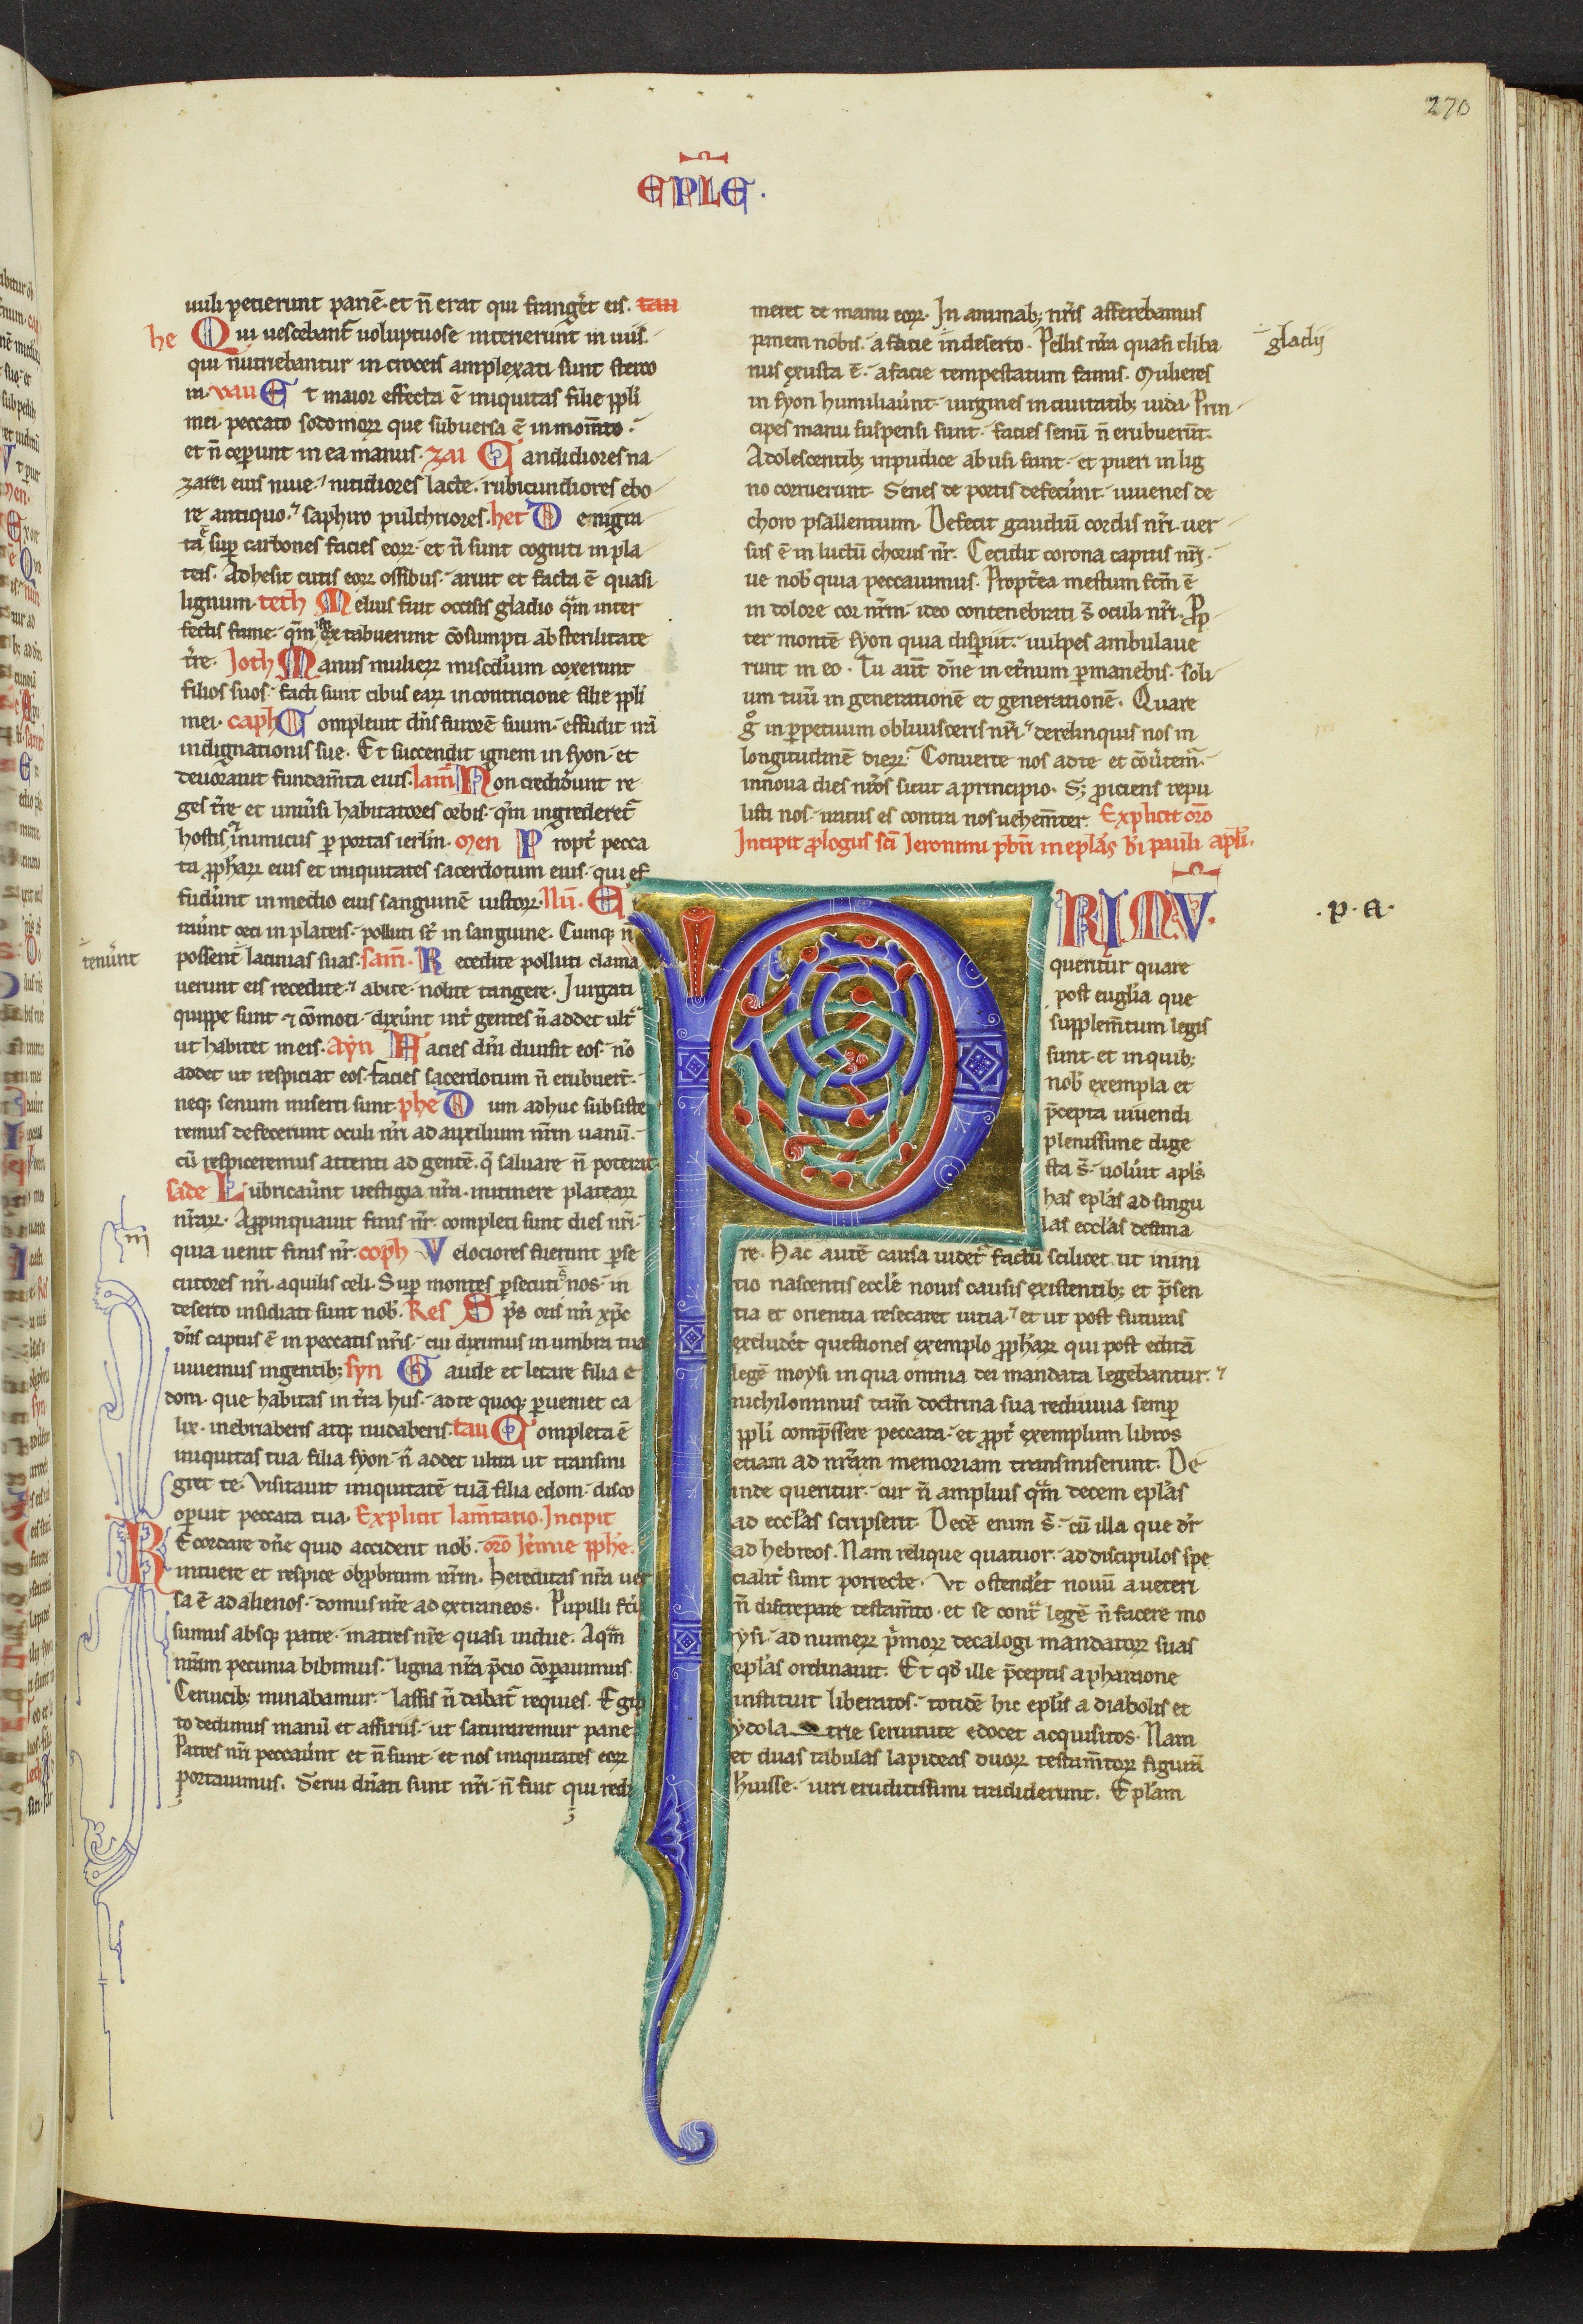 270
EPLE.
uuli petierunt panē· et n̄ erat qui frang̃et eis. tau
he Qui uescebant᷑ uoluptuose interierunt in uiis.
qui nutriebantur in croceis amplexati sunt sterco
ra. vau Et maior effecta ē iniquitas filie ppl̃i
mei· peccato sodomoꝝ que subuersa ē in mom̃to·
et n̄ ceꝑunt in ea manus. zai Candidiores na
zarei eius niue· nitidiores lacte· rubicundiores ebo
re antiquo· saphiro pulchriores. het Denigra
ta ē suꝑ carbones facies eoꝝ· et n̄ sunt cogniti in pla
teis. Adhesit cutis eoꝝ ossibus· aruit et facta ē quasi
lignum. teth Melius fuit occisis gladio q̃m inter
fectis fame· q̃m isti extabuerunt cōsumpti ab sterilitate
t̃re. Joth Manus mulieꝝ misc̃dium coxerunt
filios suos· facti sunt cibus eaꝝ in contricione filie ppl̃i
mei. caph Compleuit dñs furorē suum· effudit irã
indignationis sue. Et succendit ignem in syon· et
deuorauit fundam̃ta eius. lam̃ Non credider̃unt re
ges t̃re et uniũsi habitatores orbis· qm̃ ingrederet᷑
hostis ⁊ inimicus ꝑ portas ierl̃m. men Propt̃ pecca
ta ꝓphaꝝ eius et iniquitates sacerdotum eius· qui ef
fuder̃unt in medio eius sanguinē iustoꝝ. Nū. E
rauer̃unt ceci in plateis· polluti st̃ in sanguine. Cumq; n̄
possent lacinias suas. sam̃. Recedite polluti clama
tenuer̃unt
uerunt eis recedite· abite· nolite tangere. Iurgati
quippe sunt ⁊ cōmoti· dixer̃unt int̃ gentes n̄ addet ult̃
ut habitet in eis. Ayn Facies dñi diuisit eos· nō
addet ut respiciat eos· facies sacerdotum n̄ erubuer̃t·
neq; senum miserti sunt. phe Dum adhuc subsiste
remus defecerunt oculi nr̃i ad auxilium nr̃m uanū.
cū respiceremus attenti ad gentē· q̃ saluare n̄ poterat.
sade Lubricauer̃unt uestigia nr̃a· initinere plateaꝝ
nr̃aꝝ. Appinquauit finis nr̃· completi sunt dies nr̃i·
quia uenit finis nr̃. coph Velociores fuerunt ꝑse
cutores nr̃i aquilis celi. Suꝑ montes ꝑsecuti s̃ nos· in
deserto insidiati sunt nob̃. Res Sp̃s oris nr̃i xp̃c
dñs captus ē in peccatis nr̃is· cui diximus in umbra tua
uiuemus in gentib; syn Gaude et letare filia e
dom· que habitas in t̃ra hus· ad te quoq; ꝑueniet ca
lix· inebriaberis atq; nudaberis. tau Completa ē
iniquitas tua filia syon· n̄ addet ultra ut transmi
gret te. Visitauit iniquitatē tuā filia edom· disco
oꝑuit peccata tua. Explicit lam̃tatio. Incipit
Recordare dñe quid acciderit nob̃. or̃o Jer̃mie ꝓphe.
intuere et respice obꝓbrium nr̃m. Hereditas nr̃a uer
sa ē ad alienos· domus nr̃e ad extraneos. Pupilli fc̃i
sumus absq; patre· matres nr̃e quasi uidue. Aquã
nr̃am pecunia bibimus· ligna nr̃a p̃cio cōꝑauimus.
Ceruicib; minabamur· lassis n̄ dabat᷑ requies. Egip
to dedimus manū et assiriis· ut saturaremur pane.
Patres nr̃i peccauer̃unt et n̄ sunt· et nos iniquitates eoꝝ
portauimus. Serui dñati sunt nr̃i· n̄ fuit qui redi
meret de manu eoꝝ. In animab; nr̃is afferebamus
panem nobis· a facie in deserto. Pellis nr̃a quasi cliba
gladij
nus exusta ē· a facie tempestatum famis. Mulieres
in syon humiliauer̃unt· uirgines in ciuitatib; iuda. Prin
cipes manu suspensi sunt· facies senū n̄ erubuer̃t.
Adolescentib; inpudice abusi sunt· et pueri in lig
no corruerunt. Senes de portis defecer̃unt· iuuenes de
choro psallentium. Defecit gaudiū cordis nr̃i· uer
sus ē in luctū chorus nr̃. Cecidit corona capitis nr̃i·
ue nob̃ quia peccauimus. Propt̃ea mestum fc̃m ē
in dolore cor nr̃m· ideo contenebrati s̃ oculi nr̃i. Prop
ter montē syon quia disp̃iit· uulpes ambulaue
runt in eo. Tu aut̃ dñe in et̃num ꝑmanebis· soli
um tuū in generationē et generationē. Quare
g̊ in ꝑpetuum obliuisceris nr̃i· derelinquis nos in
longitudinē dieꝝ. Conuerte nos ad te et cōũtem᷑·
innoua dies nr̃os sicut a principio. S; ꝓiciens repu
listi nos· iratus es contra nos uehem̃ter. Explicit or̃o
Incipit ꝓlogus sc̃i Jeronimi pb̃ri in epl̃as b̃i pauli apl̃i.
PRIMU.
·p·a·
queritur quare
post euglia que
supplem̃tum legis
sunt· et in quib;
nob̃ exempla et
p̃cepta uiuendi
plenissime dige
sta s̃· uoluit apl̃s
has epl̃as ad singu
las eccl̃as destina
re. Hac autē causa uidet᷑ factū scilicet ut inini
tio nascentis eccl̃e nouis causis existentib; et p̃sen
tia et orientia resecaret uitia· et ut post futuras
excluder̃et questiones exemplo ꝓphaꝝ qui post editã
legē moysi in qua omnia dei mandata legebantur· ⁊
nichilominus tam̃ doctrina sua rediuiua semꝑ
ppl̃i comp̃ssere peccata· et ꝓpt̃ exemplum libros
etiam ad nr̃am memoriam transmiserunt. De
inde queritur· cur n̄ amplius q̃m decem epl̃as
ad eccl̃as scripserit. Decē enim s̃· cū illa que dr̃
ad hebreos. Nam relique quatuor· ad discipulos spe
cialit̃ sunt porrecte. Vt ostender̃et nouū a ueteri
n̄ discrepare testam̃to· et se cont̃ legē n̄ facere mo
ysi· ad numeꝝ p̃moꝝ decalogi mandatoꝝ suas
epl̃as ordinauit. Et qd̃ ille p̃ceptis a pharaone
instituit liberatos· totidē hic epl̃is a diaboli et
ydolatrie seruitute edocet acquisitos. Nam
et duas tabulas lapideas duoꝝ testam̃toꝝ figurã
h̃uisse· uiri eruditissimi tradiderunt. Epl̃am